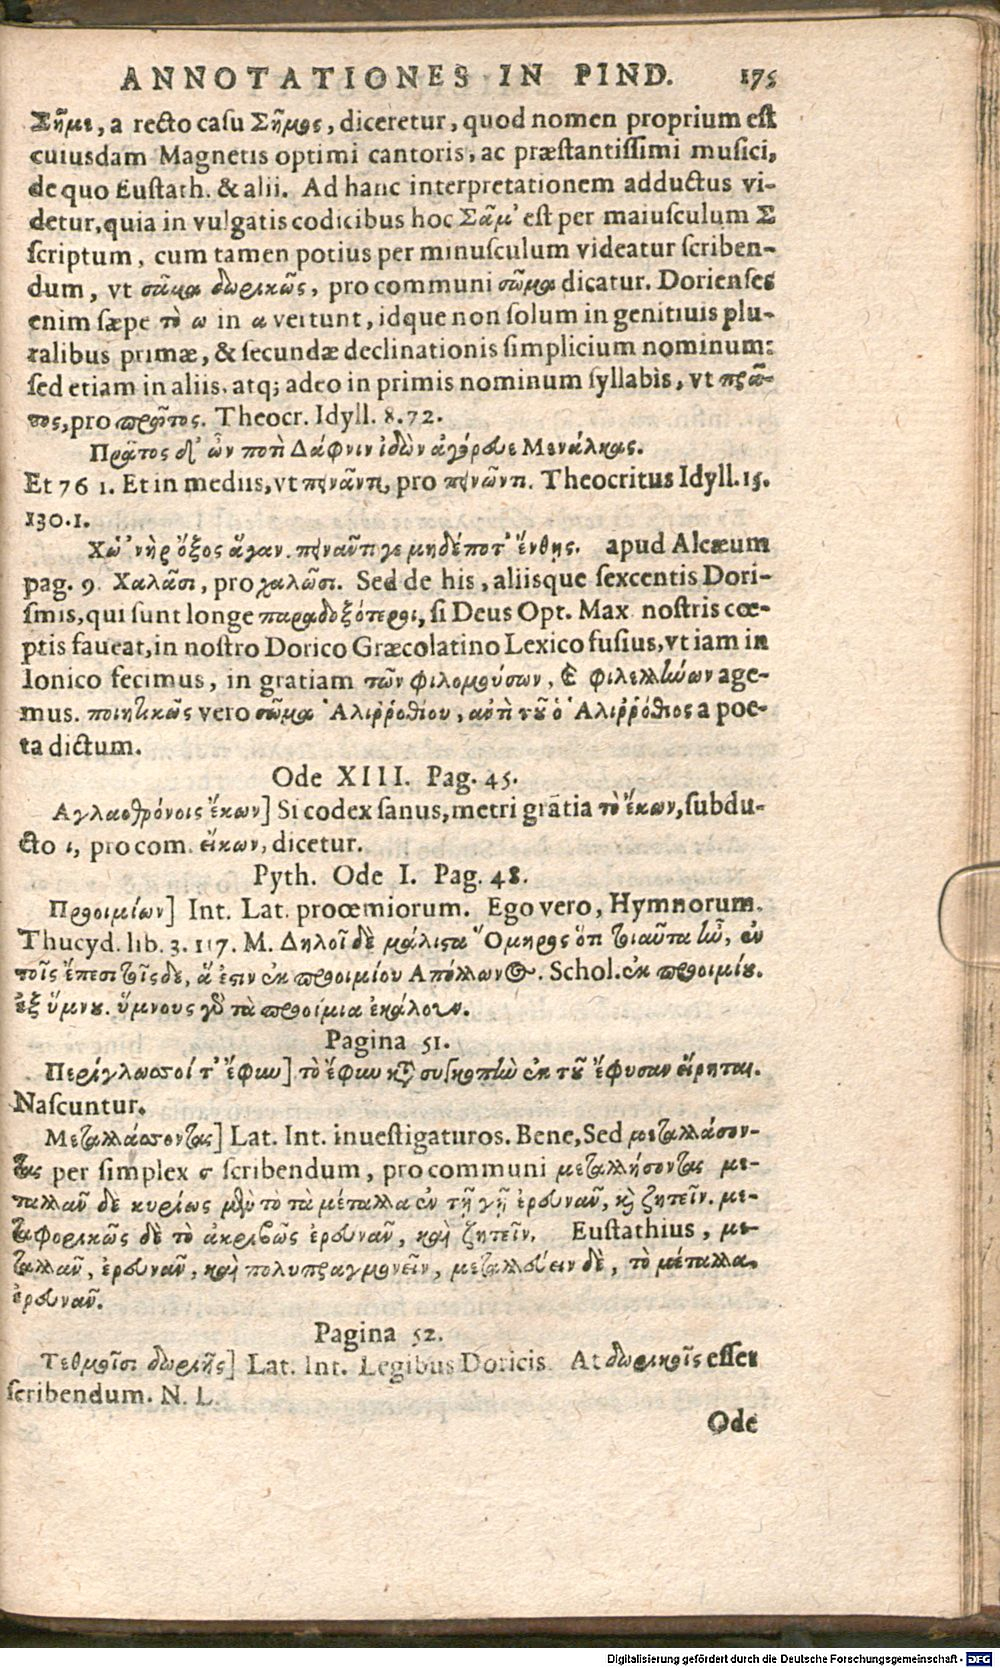 ANNOTATIONES IN PIND. 175
Σῆμε, a recto casu Σῆμος, diceretur, quod nomen proprium est
cuiusdam Magnetis optimi cantoris, ac præstantissimi musici,
de quo Eustath. & alii. Ad hanc interpretationem adductus vi-
detur, quia in vulgatis codicibus hoc Σᾶμ' est per maiusculum Σ
scriptum, cum tamen potius per minusculum videatur scriben-
dum, vt σᾶμα δωρικῶς, pro communi σῶμα dicatur. Dorienses
enim sæpe τὸ ω in α vertunt, idque non solum in genitiuis plu-
ralibus primæ, & secundæ declinationis simplicium nominum:
sed etiam in aliis. atq; adeo in primis nominum syllabis, vt πρᾶ-
τος, pro πρῶτος. Theocr. Idyll. 8. 72.
Πρᾶτος δ' ὦν ποτὶ Δάφνιν ἰδὼν ἀγόρευε Μενάλκας.
Et 76 1. Et in mediis, vt πεινᾶντι, pro πεινῶντι. Theocritus Idyll. 15.
130. 1.
Χὠ' νὴρ ὄξος ἄγαν. πεινᾶντί γε μηδέποτ' ἔνθῃς. apud Alcæum
pag. 9. Χαλᾶσι, pro χαλῶσι. Sed de his, aliisque sexcentis Dori-
smis, qui sunt longe παραδοξότεροι, si Deus Opt. Max. nostris cœ-
ptis faueat, in nostro Dorico Græcolatino Lexico fusius, vt iam in
Ionico fecimus, in gratiam τῶν φιλομούσων, & φιλελλήνων age-
mus. ποιητικῶς vero σῶμα Ἁλιῤῥοθίου, αὐτὶ τοῦ ὁ Ἁλιῤῥόθιος a poe-
ta dictum.
Ode XIII. Pag. 45.
Αγλαοθρόνοις ἕκων] Si codex sanus, metri gratia τὸ ἕκων, subdu-
cto ι, pro com. εἵκων, dicetur.
Pyth. Ode I. Pag. 48.
Προοιμίων] Int. Lat. procemiorum. Ego vero, Hymnorum.
Thucyd. lib. 3. 117. M. Δηλοῖ δὲ μάλιστα Ὅμηρος ὅτι τοιαῦτα ἦν, ἐν
τοῖς ἔπεσι τοῖς δε, ἅ ἐστιν ἐκ προοιμίου Απόλλωνος. Schol. ἐκ προοιμίου.
ἐξ ὕμνου. ὕμνους γὰρ τὰ προοίμια ἐκάλουν.
Pagina 51.
Περίγλωσσοί τ' ἔφυν] τὸ ἔφυν κατὰ συγκοπὴν ἐκ τοῦ ἔφυσαν εἴρηται.
Nascuntur.
Μεταλλάσσοντας] Lat. Int. inuestigaturos. Bene, Sed μεταλλάσον-
τας per simplex σ scribendum, pro communi μεταλλήσοντας με-
ταλλᾶν δὲ κυρίως μὲν τὸ τὰ μέταλλα ἐν τῇ γῇ ἐρευνᾶν, καὶ ζητεῖν. με-
ταφορικῶς δὲ τὸ ἀκριβῶς ἐρευνᾶν, καὶ ζητεῖν. Eustathius, με-
ταλλᾶν, ἐρευνᾶν, καὶ πολυπραγμονεῖν, μεταλλεύειν δὲ, τὸ μέταλλα
ἐρευνᾶν.
Pagina 52.
Τεθμοῖσι δωριῆς] Lat. Int. Legibus Doricis. At δωρικοῖς esset
scribendum. N. L.
Ode
Digitalisierung gefördert durch die Deutsche Forschungsgemeinschaft - DFG